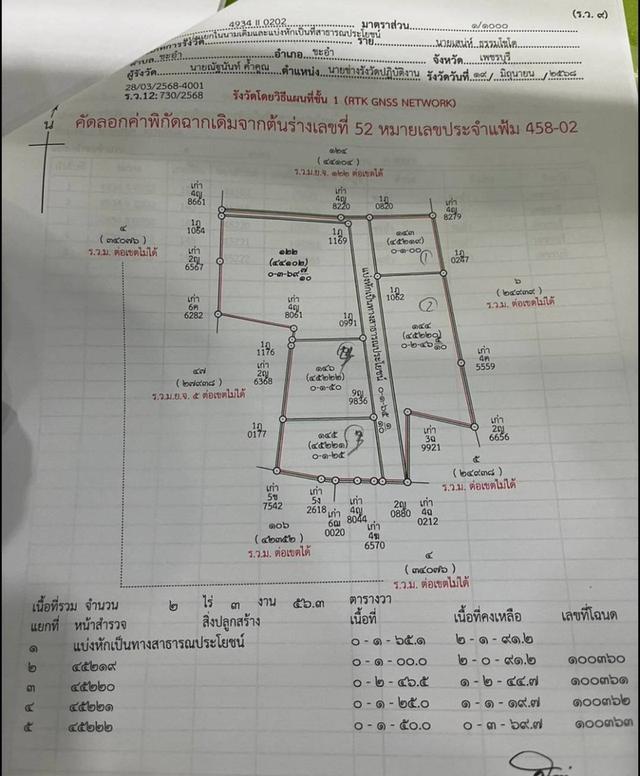 (ร.ว. ๙)
4934 II 0202 มาตราส่วน ๑/๑๐๐๐
แยกในนามเดิมและแบ่งหักเป็นที่สาธารณประโยชน์ ราย นายเสน่ห์ ธรรมโชโต
ชะอำ อำเภอ ชะอำ จังหวัด เพชรบุรี
ผู้รังวัด นายณัฐนันท์ ค้ำคูณ ตำแหน่ง นายช่างรังวัดปฏิบัติงาน รังวัดวันที่ ๑๙/ มิถุนายน /๒๕๖๘
28/03/2568-4001
ร.ว.12: 730/2568 รังวัดโดยวิธีแผนที่ชั้น 1 (RTK GNSS NETWORK)
น
คัดลอกค่าพิกัดฉากเดิมจากต้นร่างเลขที่ 52 หมายเลขประจำแฟ้ม 458-02
๑๒๔
(๔๔๑๐๔)
ร.ว.ม.ย.จ. ๑๒๒ ต่อเขตได้
เก่า
4ญ
8661
เก่า
4ญ
8220
1ภ
0820
เก่า
4ญ
8279
1ภ
1064
1ภ
1169
๑๔๓
(๔๕๒๑๙)
๐-๑-๐๐
①
๔
(๓๔๐๗๖)
ร.ว.ม. ต่อเขตไม่ได้
เก่า
2ญ
6567
๑๒๒
(๔๔๑๐๒)
๐-๓-๖๙ ๗/๑๐
1ภ
0247
แบ่งหักเป็นทางสาธารณประโยชน์ ๐-๑-๖๕ ๑/๑๐
1ภ
1062
②
๖
(๒๔๙๓๙)
ร.ว.ม. ต่อเขตไม่ได้
เก่า
6ค
6282
เก่า
4ญ
8061
1ภ
0991
๑๔๔
(๔๕๒๒๐)
๐-๒-๔๖ ๕/๑๐
1ภ
1176
เก่า
2ญ
6368
๑๔๖
(๔๕๒๒๒)
๐-๑-๕๐
เก่า
4ค
5559
๔๗
(๒๗๙๓๘)
ร.ว.ม.ย.จ. ๕ ต่อเขตได้
9ญ
9836
1ภ
0177
๑๔๕
(๔๕๒๒๑)
๐-๑-๒๕
เก่า
3ฉ
9921
เก่า
2ญ
6656
๕
(๒๔๙๓๘)
ร.ว.ม. ต่อเขตไม่ได้
เก่า
5ข
7542
เก่า
5ง
2618
เก่า
6ฌ
0020
เก่า
4ญ
8044
เก่า
4ฆ
6570
2ญ
0880
เก่า
4ฉ
0212
๑๐๖
(๔๒๓๕๒)
ร.ว.ม. ต่อเขตไม่ได้
๔
(๓๔๐๗๖)
ร.ว.ม. ต่อเขตไม่ได้
เนื้อที่รวม จำนวน ๒ ไร่ ๓ งาน ๕๖.๓ ตารางวา
แยกที่ หน้าสำรวจ สิ่งปลูกสร้าง เนื้อที่ เนื้อที่คงเหลือ เลขที่โฉนด
๑ แบ่งหักเป็นทางสาธารณประโยชน์ ๐ - ๑ - ๖๕.๑ ๒ - ๑ - ๙๑.๒
๒ ๔๕๒๑๙ ๐ - ๑ - ๐๐.๐ ๒ - ๐ - ๙๑.๒ ๑๐๐๓๖๐
๓ ๔๕๒๒๐ ๐ - ๒ - ๔๖.๕ ๑ - ๒ - ๔๔.๗ ๑๐๐๓๖๑
๔ ๔๕๒๒๑ ๐ - ๑ - ๒๕.๐ ๑ - ๑ - ๑๙.๗ ๑๐๐๓๖๒
๕ ๔๕๒๒๒ ๐ - ๑ - ๕๐.๐ ๐ - ๓ - ๖๙.๗ ๑๐๐๓๖๓